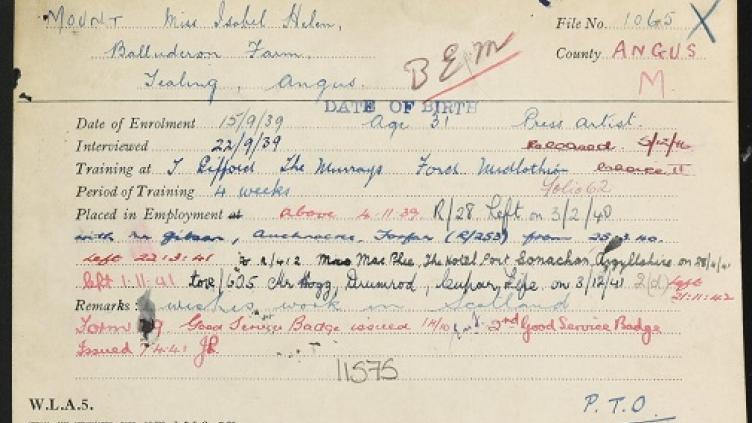 MOUNT Miss Isabel Helen, File No. 1065 X
Balluderon Farm, County ANGUS
Tealing, Angus. BEM M.
DATE OF BIRTH
Date of Enrolment 15/9/39 Age 31 Press Artist.
Interviewed 22/9/39 Released 5/12/
Training at T Gifford The Murrays Ford Midlothian
Period of Training 4 weeks Folio 62
Placed in Employment at above 4.11.39. R/28. Left on 3/2/40
with Mr Gibson, Auchnacree, Forfar (R/253) from 25.3.40.
left 22.3.41 to R/412 Mrs MacPhee, The Hotel Port Sonachan, Argyllshire on
left 1.11.41 to R/625 Mr Hogg, Drumrod, Cupar, Fife on 3/12/41 2(d) left
21.11.42
Remarks: wishes work in Scotland
Form Good Service Badge issued 2nd Good Service Badge
Issued 7.4.41 JR
11575
W.L.A.5. P.T.O.